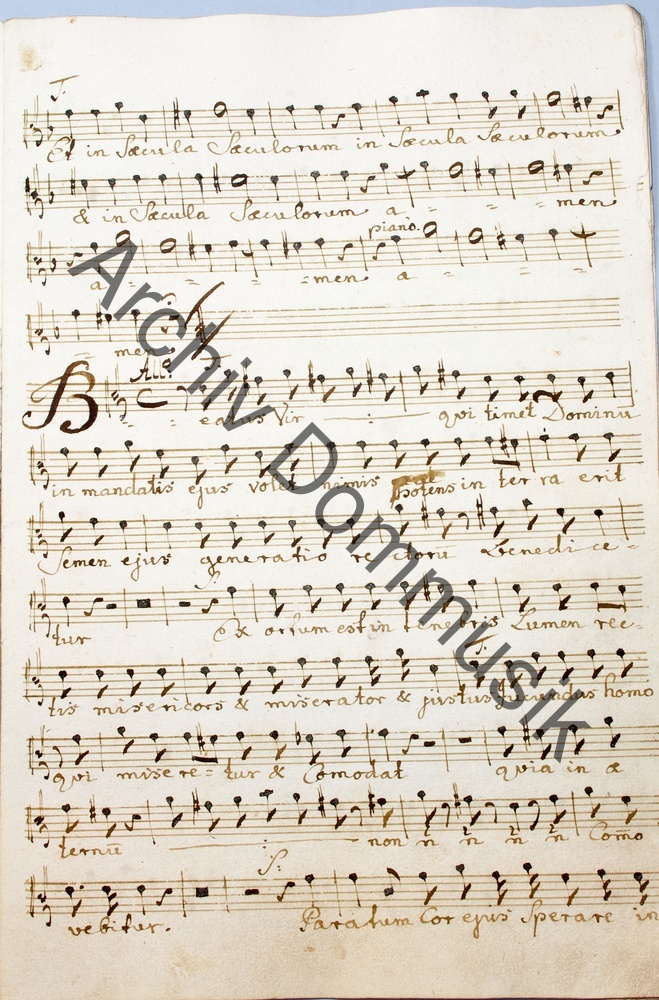 T.
Et in Sæcula Sæculorum in Sæcula Sæculorum
& in Sæcula Sæculorum a - - - men
piano.
a - - - - men a - - -
- men
All:o
Beatus Vir qui timet Dominū
in mandatis ejus volet nimis potens in ter ra erit
Semen ejus generatio rectorū benedice -
S:
tur Ex ortum est in tenebris Lumen rec -
T.
tis misericors & miserator & justus Jucundus homo
qui misere - tur & Comodat quia in æ
ternū non n̄ n̄ n̄ n̄ Com̄o
S:
vebitur. Paratum Cor ejus Sperare in
Archiv Dommusik